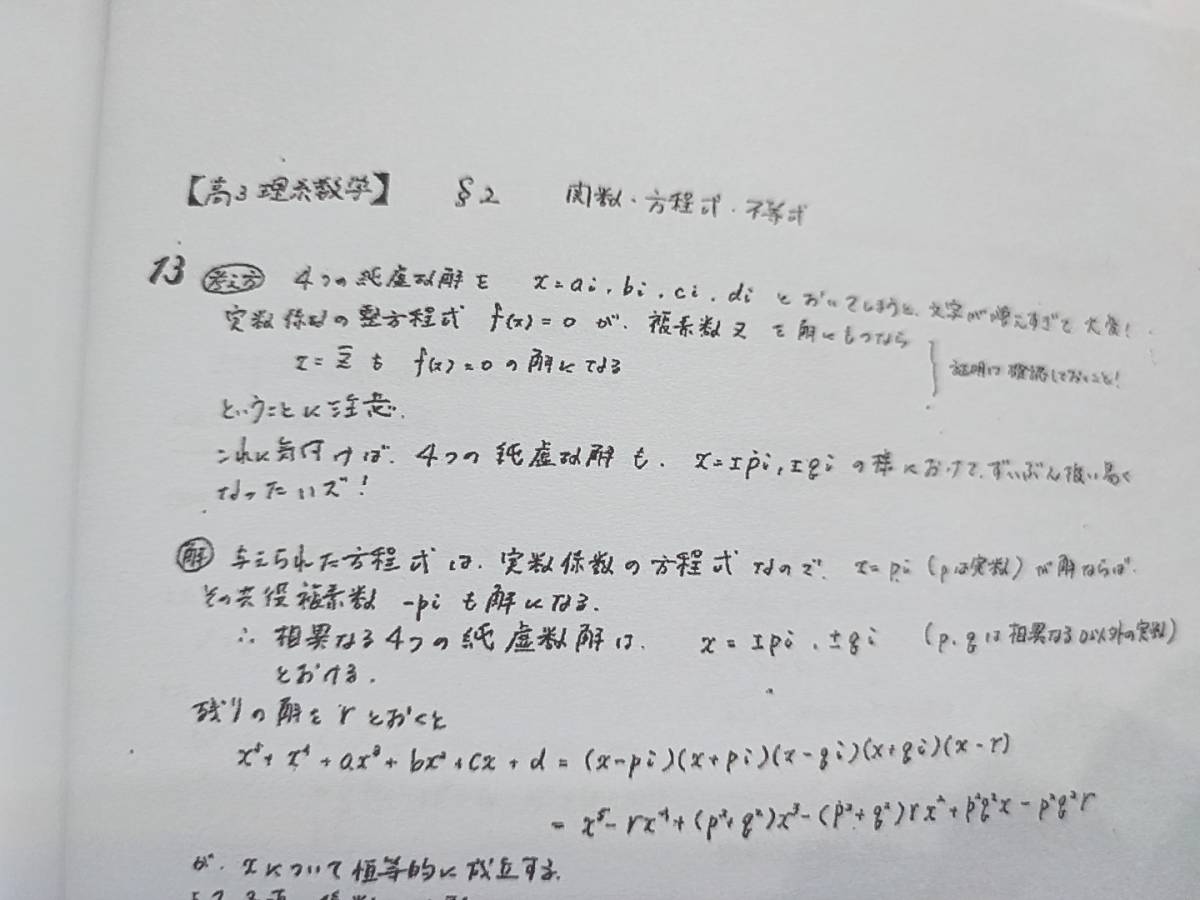 【高3理系数学】 §2 関数・方程式・不等式
13 考え方 4つの純虚数解を x=ai, bi, ci, di とおいてしまうと、文字が増えすぎて大変!
実数係数の整方程式 f(x)=0 が、複素数 z を解にもつなら
x=z̅ も f(x)=0 の解になる
証明は確認しておくこと!
ということに注意.
これに気付けば、4つの純虚数解も、x=±pi, ±qi の様におけて、ずいぶん扱い易く
なったハズ!
解 与えられた方程式は、実数係数の方程式なので、x=pi (pは実数) が解ならば、
その共役複素数 -pi も解になる.
∴ 相異なる4つの純虚数解は、 x = ±pi, ±qi (p, q は相異なる0以外の実数)
とおける.
残りの解を r とおくと
x⁵+x⁴+ax³+bx²+cx+d = (x-pi)(x+pi)(x-qi)(x+qi)(x-r)
= x⁵-rx⁴+(p²+q²)x³-(p²+q²)rx²+p²q²x-p²q²r
が、xについて恒等的に成立する.